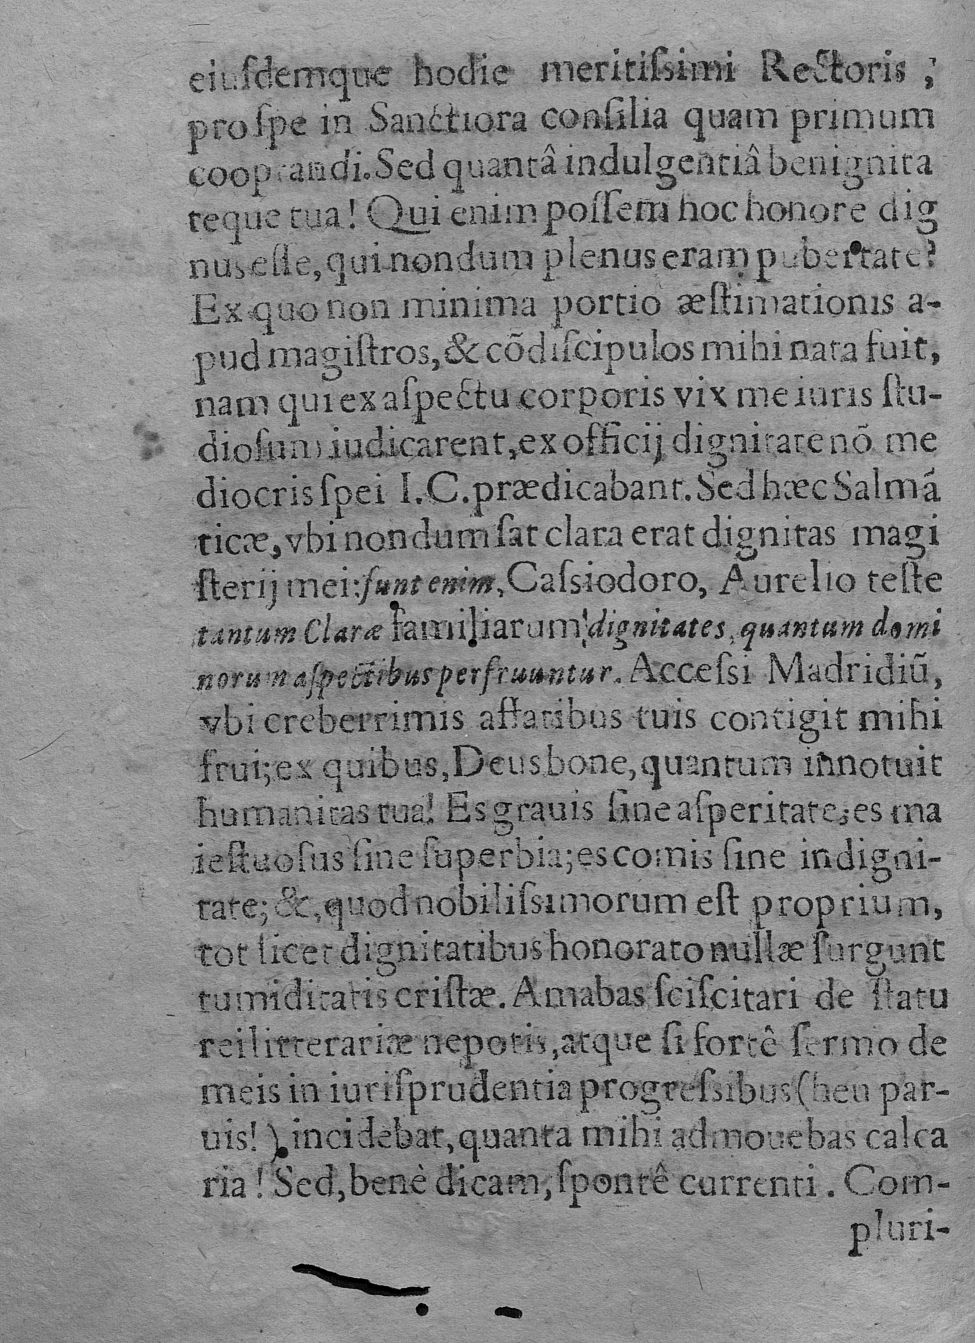 eiuſdemque hodie meritiſsimi Rectoris,
pro ſpe in Sanctiora conſilia quam primum
cooptandi. Sed quantâ indulgentiâ benignita
teque tua! Qui enim poſſem hoc honore dig
nus eſſe, qui nondum plenus eram pubertate?
Ex quo non minima portio æſtimationis a-
pud magiſtros, & cõdiſcipulos mihi nata fuit,
nam qui ex aſpectu corporis vix me iuris ſtu-
dioſum iudicarent, ex officij dignitate nõ me
diocris ſpei I.C. prædicabant. Sed hæc Salmá
ticæ, vbi nondum ſat clara erat dignitas magi
ſterij mei: ſunt enim, Caſsiodoro, Aurelio teſte
tantum Claræ familiarum dignitates, quantum domi
norum aſpectibus perfruuntur. Acceſsi Madridiũ,
vbi creberrimis affatibus tuis contigit mihi
frui; ex quibus, Deus bone, quantum innotuit
humanitas tua! Es grauis ſine aſperitate; es ma
ieſtuoſus ſine ſuperbia; es comis ſine indigni-
tate; &, quod nobiliſsimorum eſt proprium,
tot licet dignitatibus honorato nullæ ſurgunt
tumiditatis criſtæ. Amabas ſciſcitari de ſtatu
rei litterariæ nepotis, atque ſi fortê ſermo de
meis in iuriſprudentia progreſsibus (heu par-
uis!) incidebat, quanta mihi admouebas calca
ria! Sed, benè dicam, ſpontê currenti. Com-
pluri-